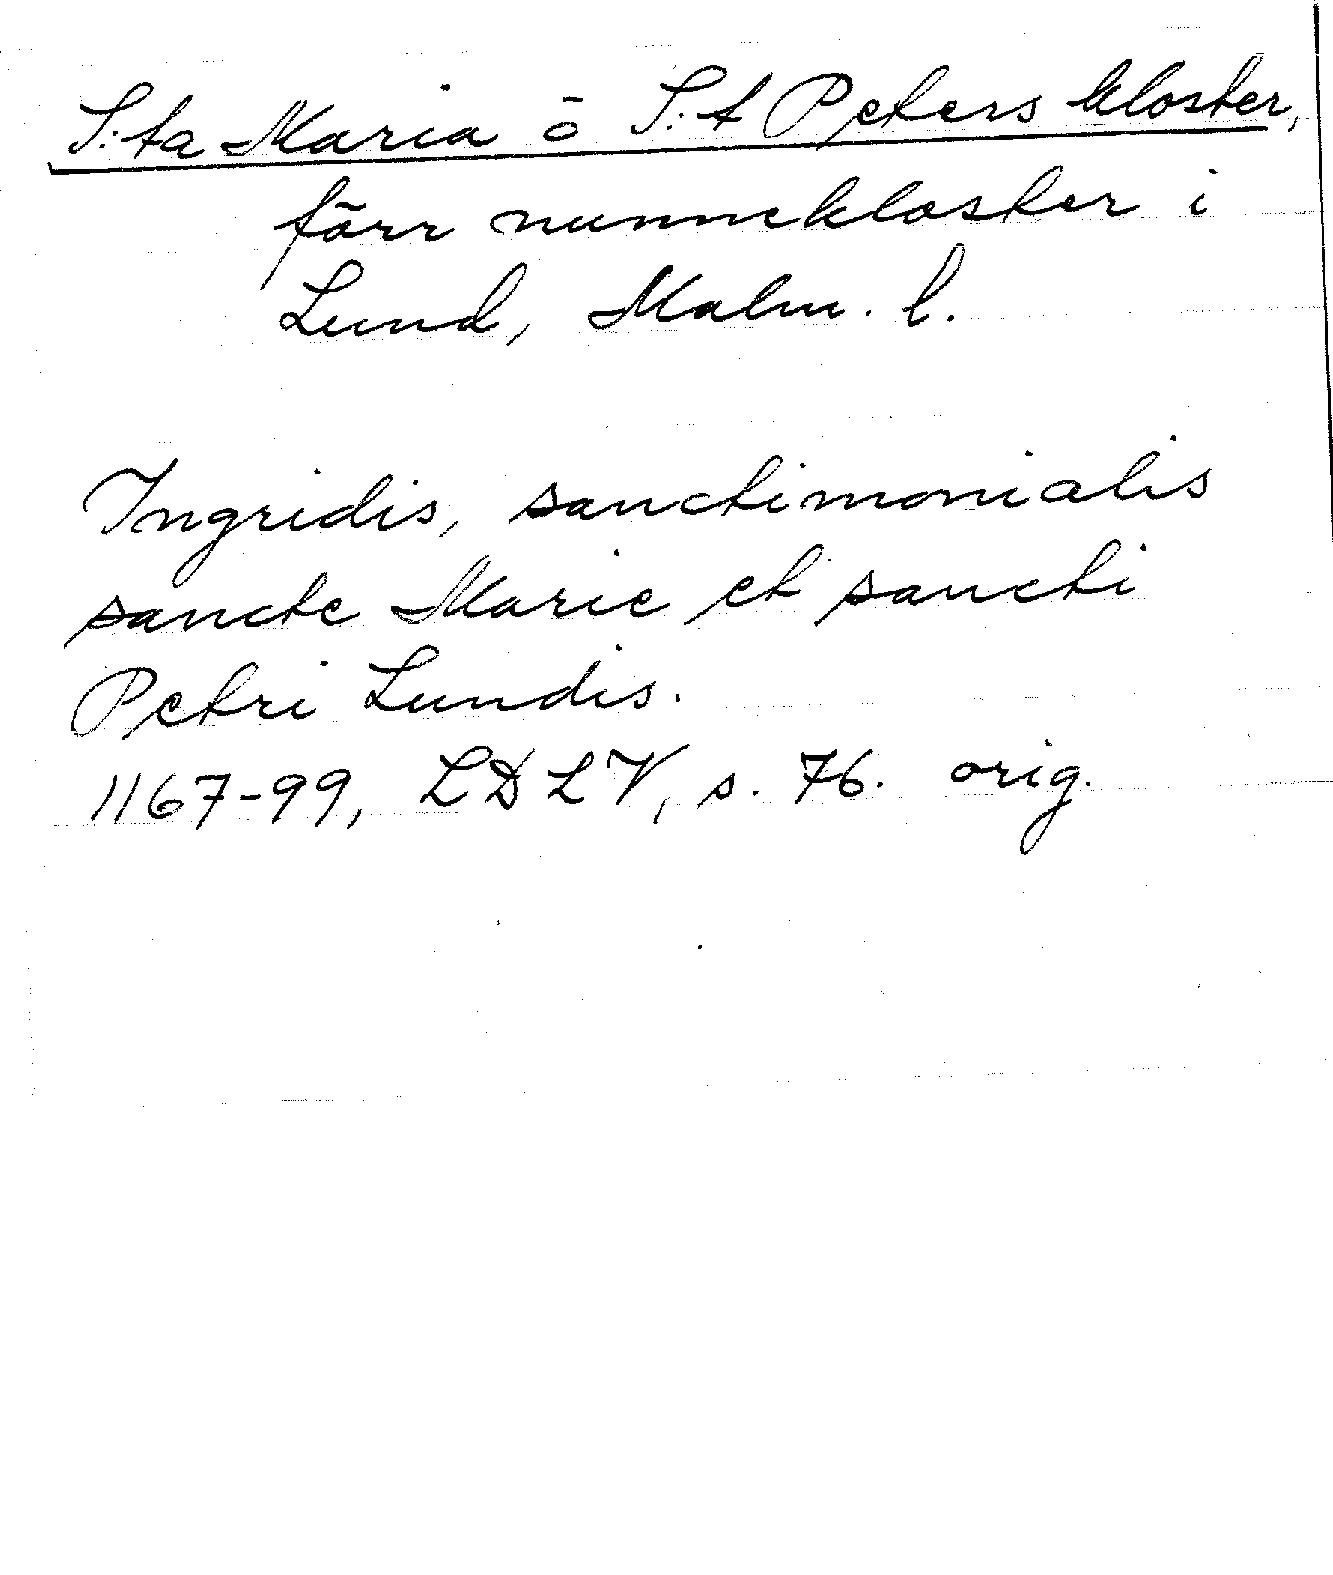 S:ta Maria o S:t Peters kloster,
förr nunnekloster i
Lund, Malm. l.
Ingridis, sanctimonialis
sancte Marie et sancti
Petri Lundis.
1167-99, LDLV, s. 76. orig.